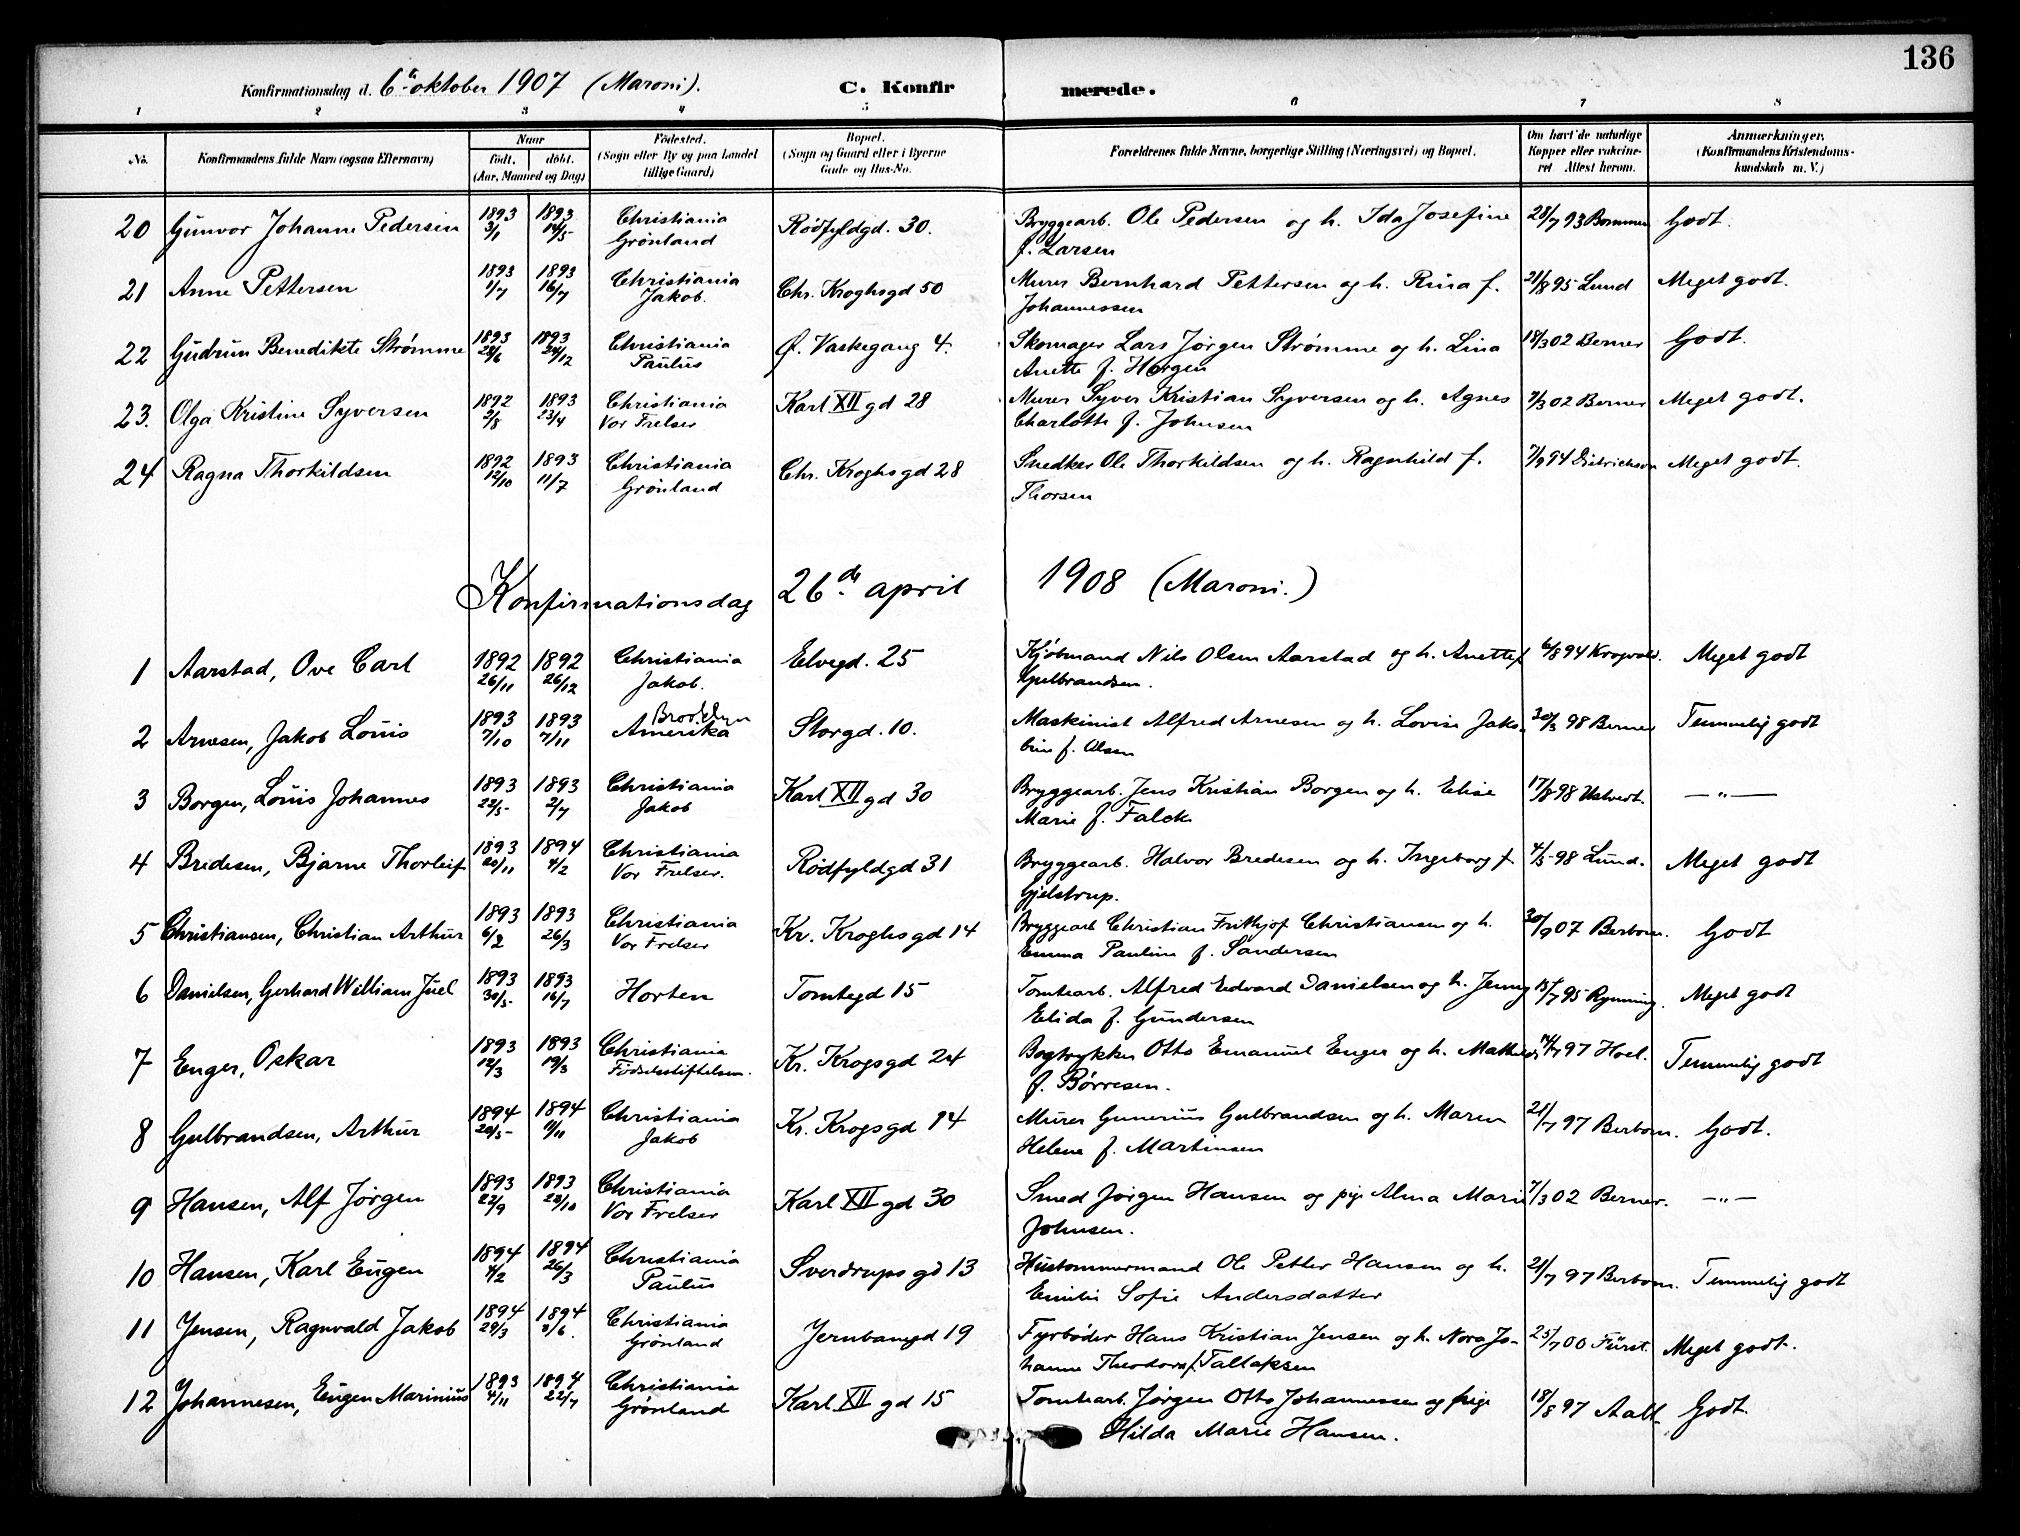 136
Konfirmationsdag d. 6te oktober 1907 (Maroni). C. Konfirmerede.
1 2 3 4 5 6 7 8
No. Konfirmandens fulde Navn (ogsaa Efternavn) Naar født. døbt. (Aar, Maaned og Dag) Fødested. (Sogn eller By og paa Landet tillige Gaard) Bopæl. (Sogn og Gaard eller i Byerne Gade og Hus-No. Forældrenes fulde Navne, borgerlige Stilling (Næringsvei) og Bopæl. Om havt de naturlige Kopper eller vakcineret Attest herom. Anmærkninger. (Konfirmandens Kristendomskundskab m. V.)
20 Gunvor Johanne Pedersen 1893 3/1 1893 14/5 Christiania Grönland Rödfyldgd. 30. Bryggearb. Ole Pedersen og h. Ida Josefine f. Larsen 28/7 93 Bommen Godt.
21 Anne Pettersen 1893 1/7 1893 16/7 Christiania Jakob. Chr. Kroghsgd 50 Murer Bernhard Pettersen og h. Rina f. Johannessen 21/8 95 Lund Meget godt.
22 Gudrun Benedikte Strømme 1893 28/6 1893 24/12 Christiania Paulus Ø. Vaskegang 4. Skomager Lars Jørgen Strømme og h. Lina Anette f. Horgen 18/3 02 Berner Godt.
23. Olga Kristine Syversen 1892 2/8 1893 23/4 Christiania Vor Frelser Karl XII gd 28 Murer Syver Kristian Syversen og h. Agnes Charlotte f. Johnsen 7/3 02 Berner Meget godt.
24 Ragna Thorkildsen 1892 12/10 1893 11/7 Christiania Grönland Chr. Kroghsgd 28 Snedker Ole Thorkildsen og h. Ragnhild f. Thorsen 7/9 94 Dietrichson Meget godt.
Konfirmationsdag 26de april 1908 (Maroni.)
1 Aarstad, Ove Carl 1892 26/11 1892 26/12 Christiania Jakob. Elvegd. 25 Kjøbmand Nils Olsen Aarstad og h. Anette f. Gulbrandsen. 6/8 94 Krogvold. Meget godt
2 Arnesen, Jakob Louis 1893 7/10 1893 7/11 Brooklyn Amerika Storgd. 10. Maskinist Alfred Arnesen og h. Lovise Jakobine f. Olsen 30/3 98 Berner Temmelig godt
3 Borgen, Louis Johannes 1893 22/5 1893 2/7 Christiania Jakob Karl XII gd 30 Bryggearb. Jens Kristian Borgen og h. Elise Marie f. Falck 17/8 98 Ustvedt. —„—
4 Bredesen, Bjarne Thorleif 1893 20/11 1894 4/2 Christiania Vor Frelser. Rödfyldgd 31 Bryggearb. Halvor Bredesen og h. Ingeborg f. Gjelstrup. 4/5 98 Lund. Meget godt
5 Christiansen, Christian Arthur 1893 6/2 1893 26/3 Christiania Vor Frelser Kr. Kroghsgd 14 Bryggearb Christian Frithjof Christiansen og h. Emma Pauline f. Sandersen 30/9 07 Berbom. Godt
6 Danielsen, Gerhard William Juel 1893 30/5 1893 16/7 Horten Tomtegd 15 Tomtearb. Alfred Edvard Danielsen og h. Jenny Elida f. Gundersen 15/7 95 Rynning. Meget godt
7 Enger, Oskar 1893 12/3 1893 19/3 Christiania Födselsstiftelsen. Kr. Krogsgd 24 Bogtrykker Otto Emanuel Enger og h. Mathilde f. Børresen. 14/7 97 Hoel. Temmelig godt
8 Gulbrandsen, Arthur 1894 20/5 1894 11/11 Christiania Jakob Kr. Krogsgd 14 Murer Gunerius Gulbrandsen og h. Maren Helene f. Martinsen 21/7 97 Berbom. Godt.
9 Hansen, Alf Jørgen 1893 22/9 1893 22/10 Christiania Vor Frelser Karl XII gd 30 Smed Jørgen Hansen og pige Alma Marie Johnsen. 7/3 02 Berner. —„—
10 Hansen, Karl Eugen 1894 4/2 1894 26/3 Christiania Paulus Sverdrupsgd 13 Hustømmermand Ole Petter Hansen og h. Emilie Sofie Andersdatter 21/7 97 Berbom. Temmelig godt
11 Jensen, Ragnvald Jakob 1894 29/3 1894 3/6. Christiania Grönland Jernbanegd 19 Fyrbøder Hans Kristian Jensen og h. Nora Johanne Theodora f. Tallaksen 25/7 00 Fürst. Meget godt.
12 Johannesen, Eugen Marinius 1893 4/11 1894 22/7 Christiania Grönland Karl XII gd 15 Tomtearb. Jørgen Otto Johannessen og pige Hilda Marie Hansen. 18/8 97 Aall. Godt.